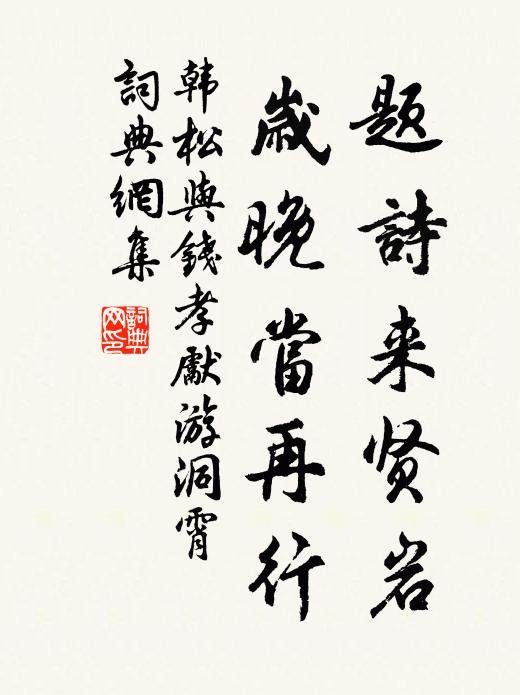 题詩来贤岩
歲晚當再行
韩松與錢孝獻游洞霄
詞典網集
詞典网印